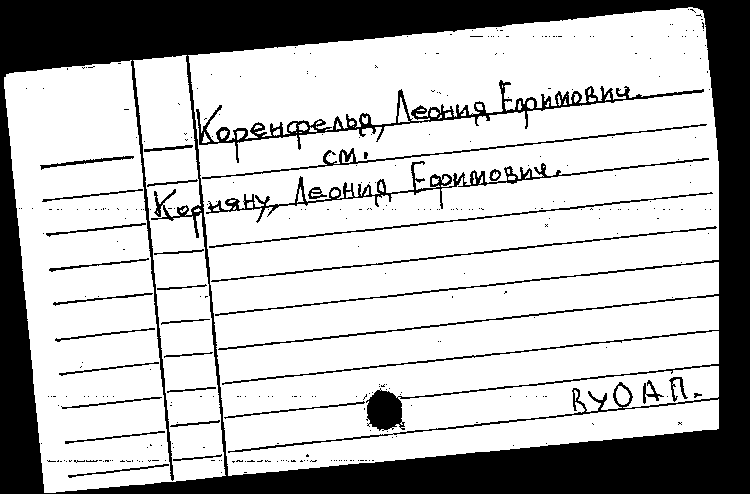 Коренфельд, Леонид Ефимович.
см.
Корняну, Леонид Ефимович.
ВУОАП.